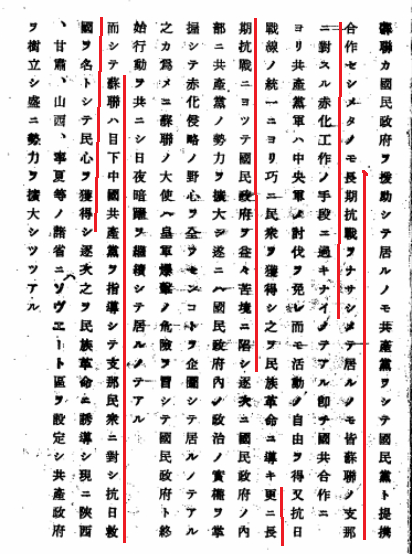 蘇聯カ國民政府ヲ援助シテ居ルノモ共產黨ヲシテ國民黨ト提携
合作セシメタノモ長期抗戰ヲナサシメテ居ルノモ皆蘇聯ノ支那
ニ對スル赤化工作ノ手段ニ過キナイノテアル卽チ國共合作ニ
ヨリ共產黨軍ハ中央軍ノ討伐ヲ免レ而モ活動ノ自由ヲ得又抗日
戰線ノ統一ニヨリ巧ニ民衆ヲ獲得シ之ヲ民族革命ニ導キ更ニ長
期抗戰ニヨツテ國民政府ヲ益々苦境ニ陷シ逐次ニ國民政府ノ內
部ニ共產黨ノ勢力ヲ擴大シ遂ニハ國民政府內ノ政治ノ實權ヲ掌
握シテ赤化侵略ノ野心ヲ全フセンコトヲ企圖シテ居ルノテアル
之カ爲メニ蘇聯ノ大使ハ皇軍爆擊ノ危險ヲ冒シテ國民政府ト終
始行動ヲ共ニシ日夜暗躍ヲ繼續シテ居ルノテアル
而シテ蘇聯ハ目下中國共產黨ヲ指導シテ支那民衆ニ對シ抗日救
國ヲ名トシテ民心ヲ獲得シ逐次之ヲ民族革命ニ誘導シ現ニ陝西
、甘肅、山西、寧夏等ノ諸省ニソヴエート區ヲ設定シ共產政府
ヲ樹立シ盛ニ勢力ヲ擴大シツツアル